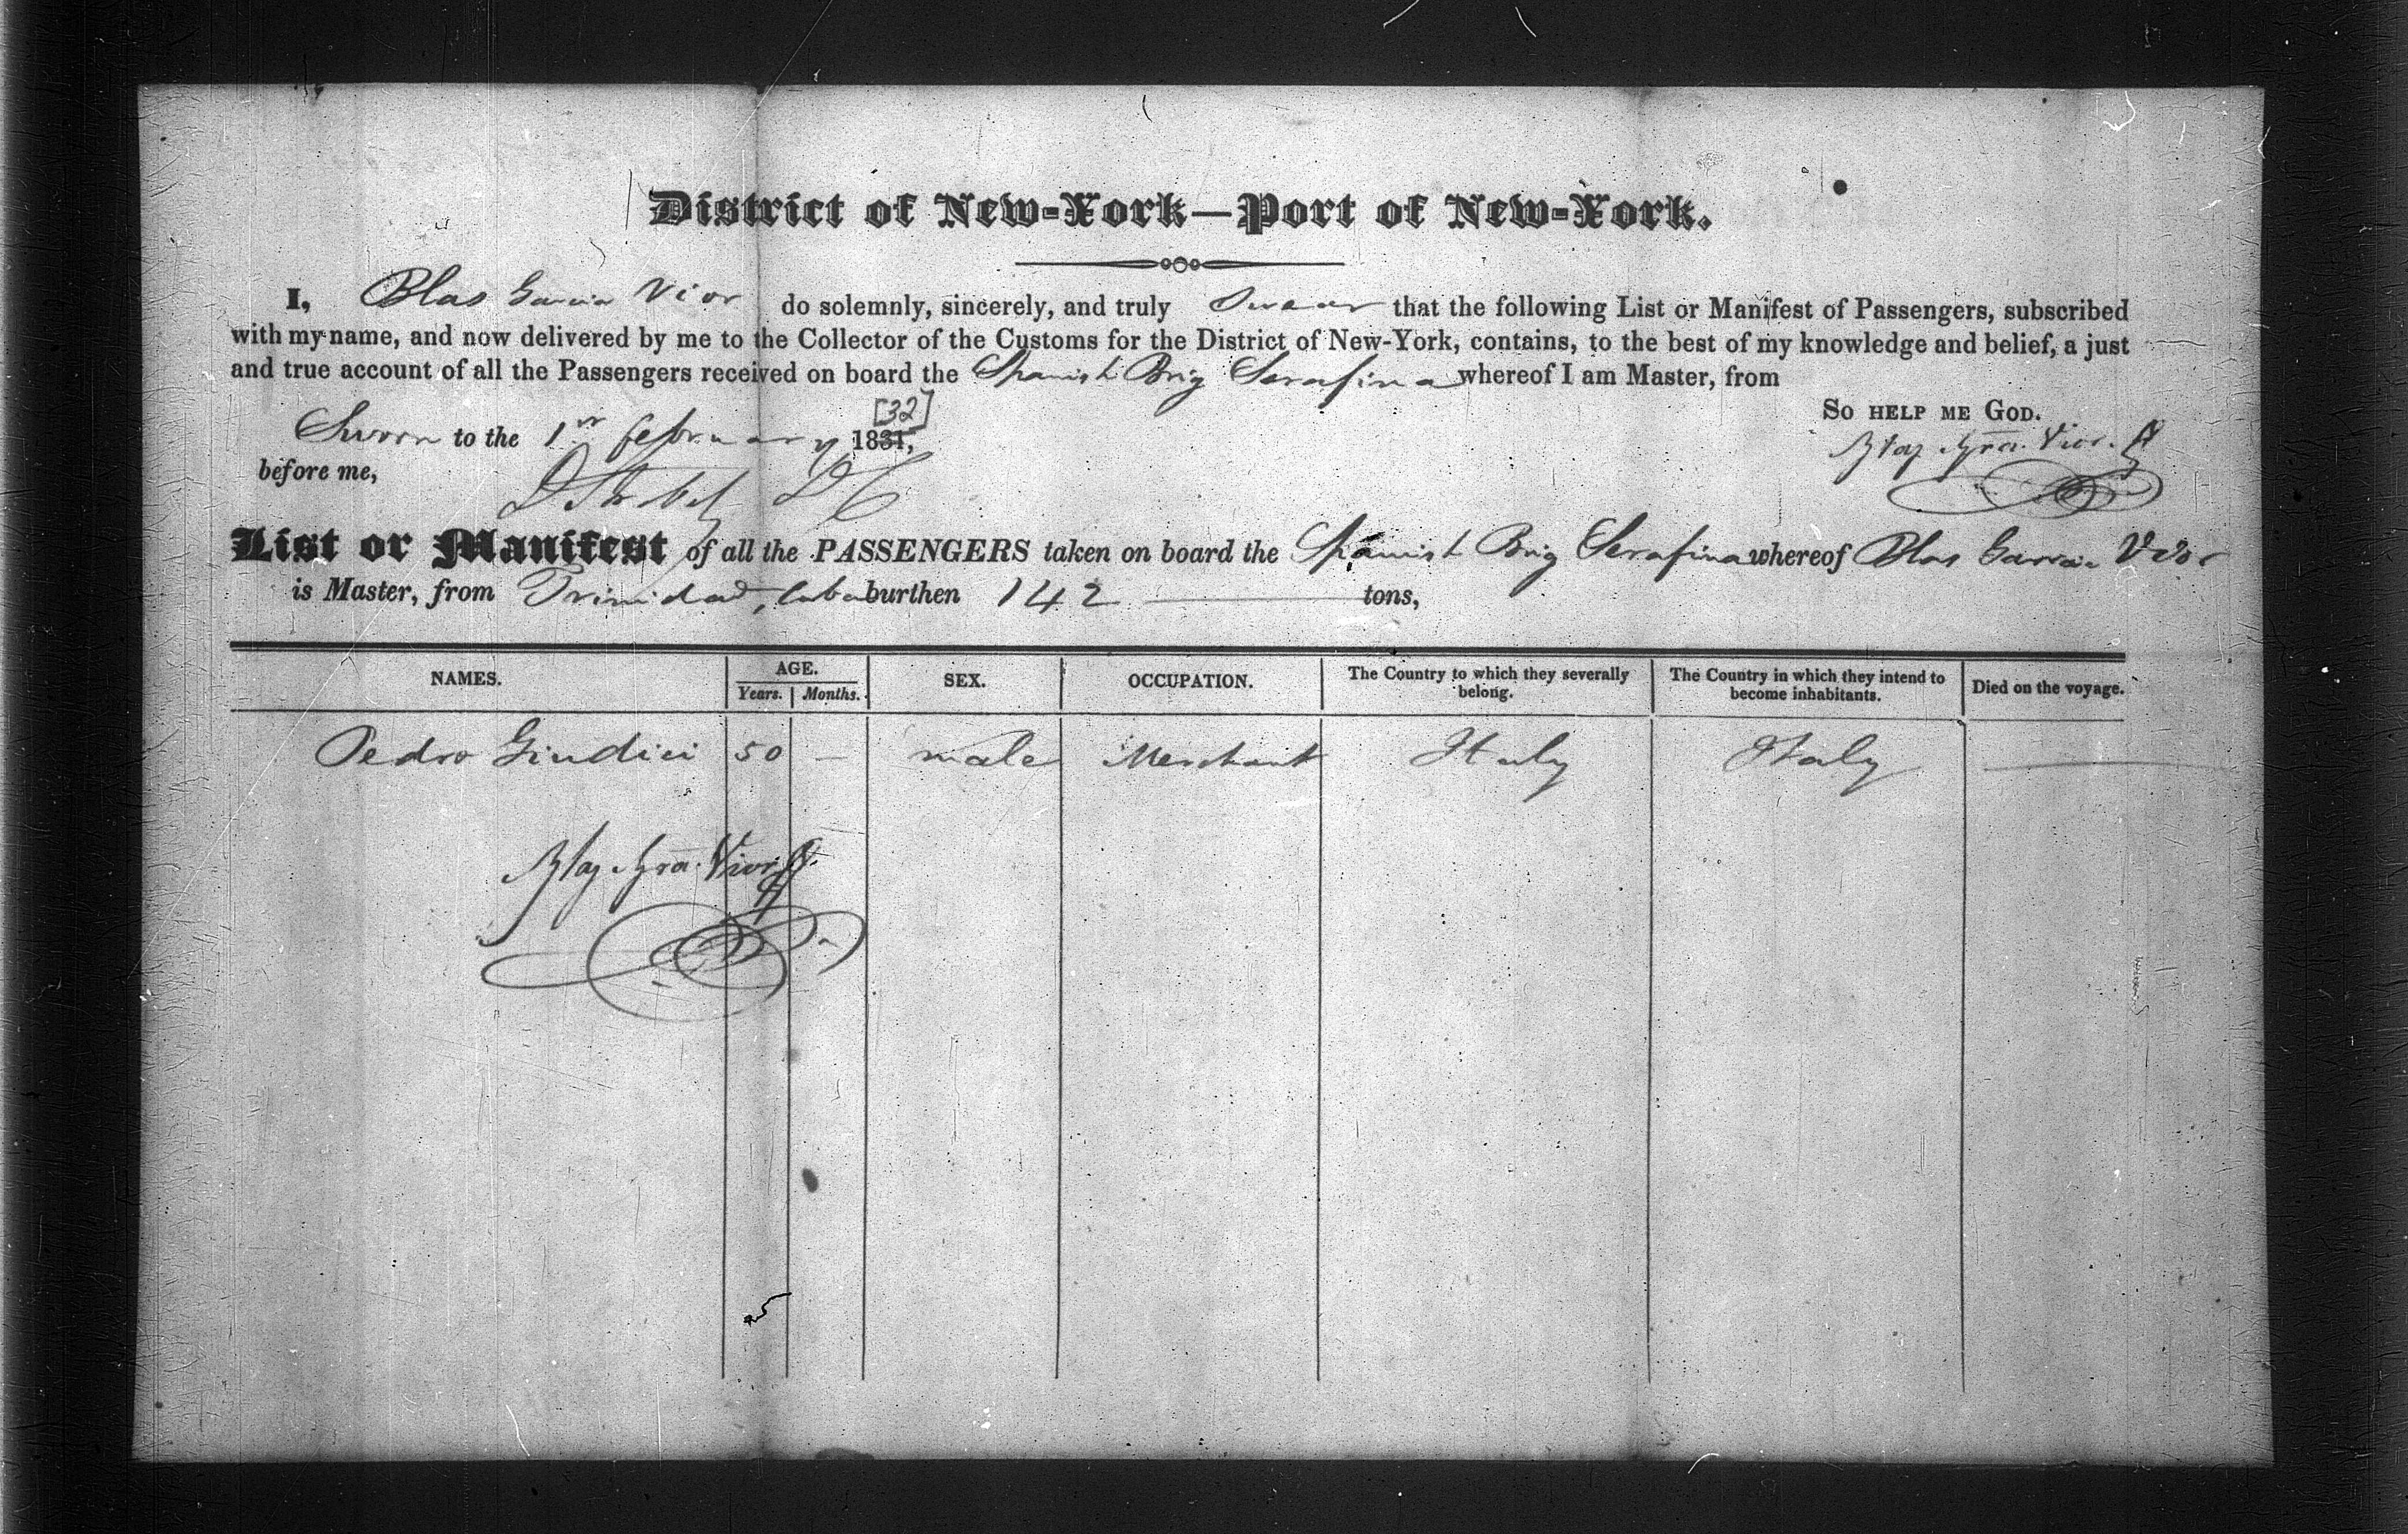 District of New-York—Port of New-York.
I, Blas Garcia Vior do solemnly, sincerely, and truly Swear that the following List or Manifest of Passengers, subscribed
with my name, and now delivered by me to the Collector of the Customs for the District of New-York, contains, to the best of my knowledge and belief, a just
and true account of all the Passengers received on board the Spanish Brig Serafina whereof I am Master, from
[32]
So help me God.
Sworn to the 1st February 1831,
Blaz Gra. Vior
before me,
List or Manifest of all the PASSENGERS taken on board the Spanish Brig Serafina whereof Blas Garcia Vior
is Master, from Trinidad, Cuba burthen 142 tons,
NAMES. AGE. SEX. OCCUPATION. The Country to which they severally belong. The Country in which they intend to become inhabitants. Died on the voyage.
Years. Months.
Pedro Giudici 50 — male Merchant Italy Italy —
Blaz Gra. Vior